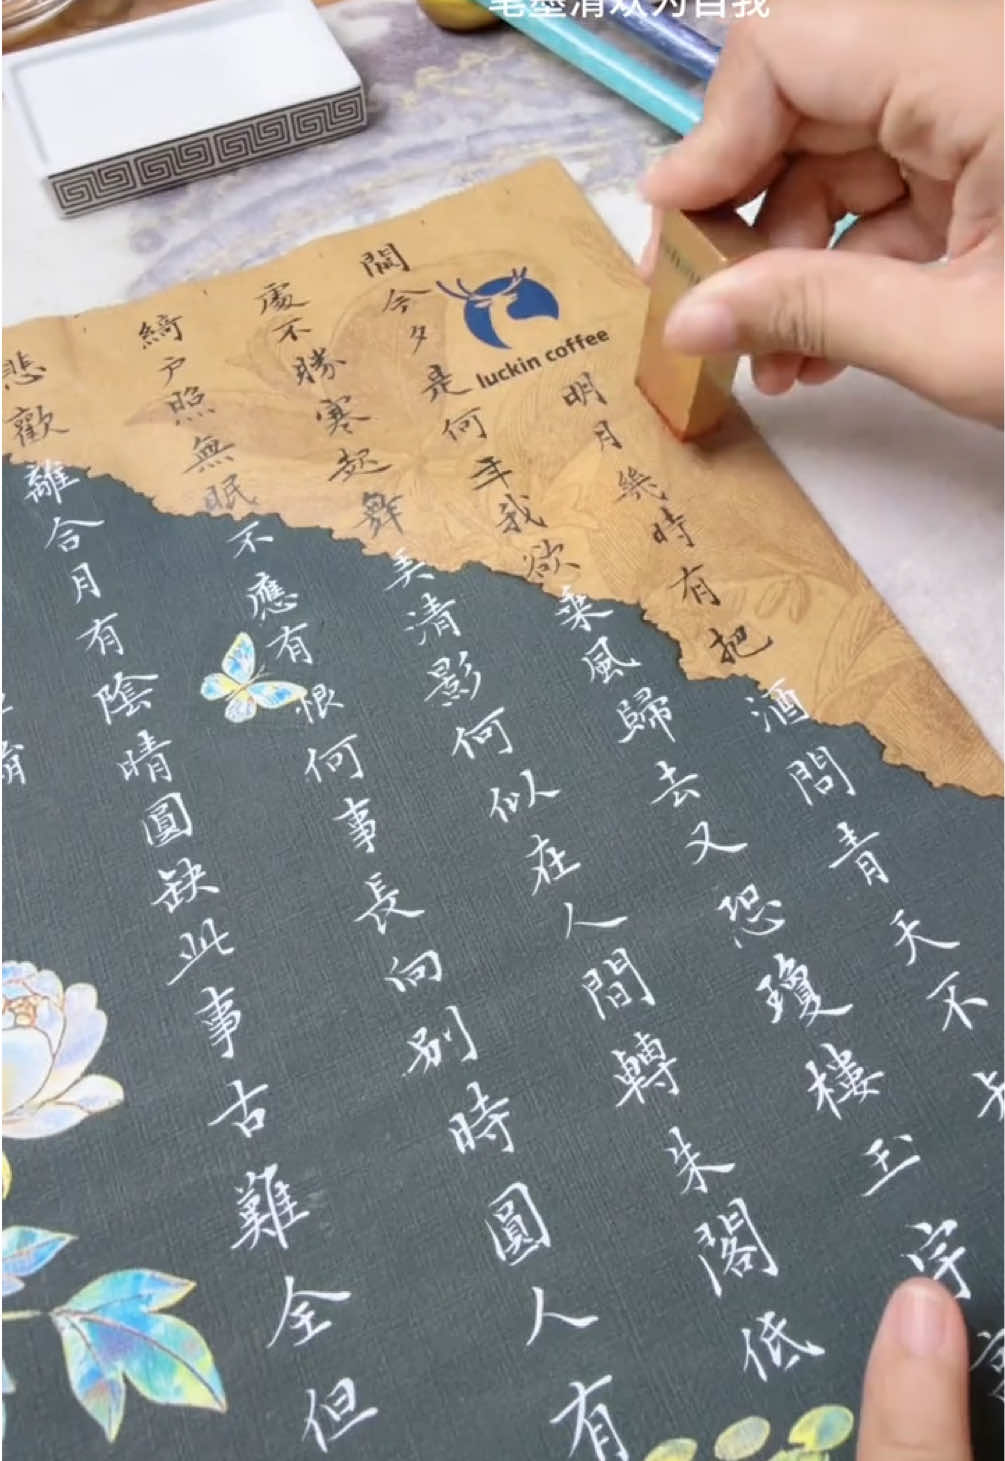 笔墨清欢为自我
luckin coffee
明月幾時有把酒問青天不
闕今夕是何年我欲乘風歸去又恐瓊樓玉宇
處不勝寒起舞弄清影何似在人間轉朱閣低
綺戶照無眠不應有恨何事長向別時圓人有
悲歡離合月有陰晴圓缺此事古難全但